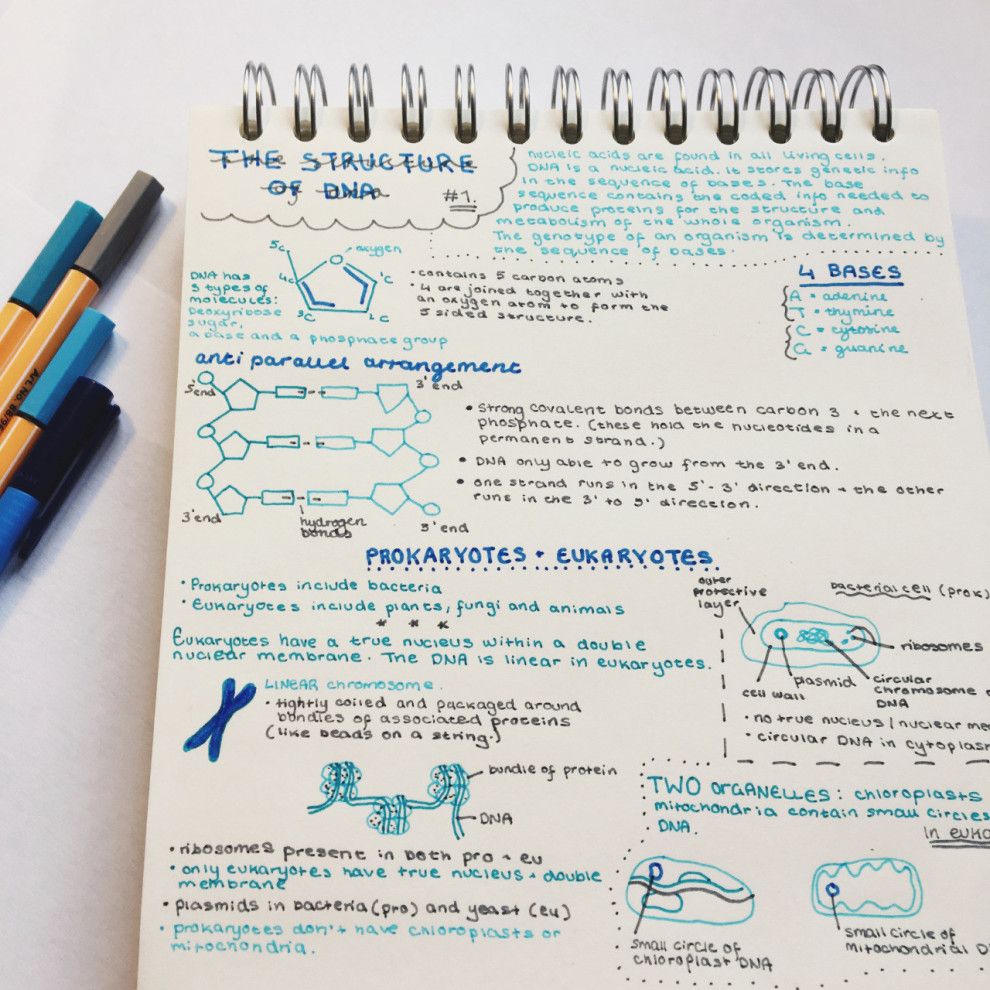 THE STRUCTURE
OF DNA
#1.
nucleic acids are found in all living cells.
DNA is a nucleic acid. it stores genetic info
in the sequence of bases. The base
sequence contains the coded info needed to
produce proteins for the structure and
metabolism of the whole organism.
The genotype of an organism is determined by
the sequence of bases.
DNA has
3 types of
molecules:
deoxyribose
sugar,
a base and a phosphate group
5c
oxygen
4c
'c
3c
2c
• contains 5 carbon atoms
• 4 are joined together with
an oxygen atom to form the
5 sided structure.
4 BASES
A = adenine
T = thymine
C = cytosine
G = guanine
anti parallel arrangement
5'end
3'end
3'end
hydrogen
bonds
5'end
• Strong covalent bonds between carbon 3 + the next
phosphate. (these hold the nucleotides in a
permanent strand.)
• DNA only able to grow from the 3' end.
• one strand runs in the 5'- 3' direction + the other
runs in the 3' to 5' direction.
PROKARYOTES + EUKARYOTES
• Prokaryotes include bacteria
• Eukaryotes include plants, fungi and animals
* * *
Eukaryotes have a true nucleus within a double
nuclear membrane. The DNA is linear in eukaryotes.
LINEAR chromosome.
• tightly coiled and packaged around
bundles of associated proteins
(like beads on a string.)
bundle of protein
DNA
• ribosomes present in both pro + eu
• only eukaryotes have true nucleus + double
membrane
• plasmids in bacteria (pro) and yeast (eu)
• prokaryotes don't have chloroplasts or
mitochondria.
outer
protective
layer
bacterial cell (prok)
ribosomes
cell wall
plasmid
circular
chromosome
DNA
• no true nucleus / nuclear
• circular DNA in
TWO ORGANELLES: chloroplasts
mitochondria contain small circles
DNA.
in
small circle of
chloroplast DNA
small circle of
mitochondrial